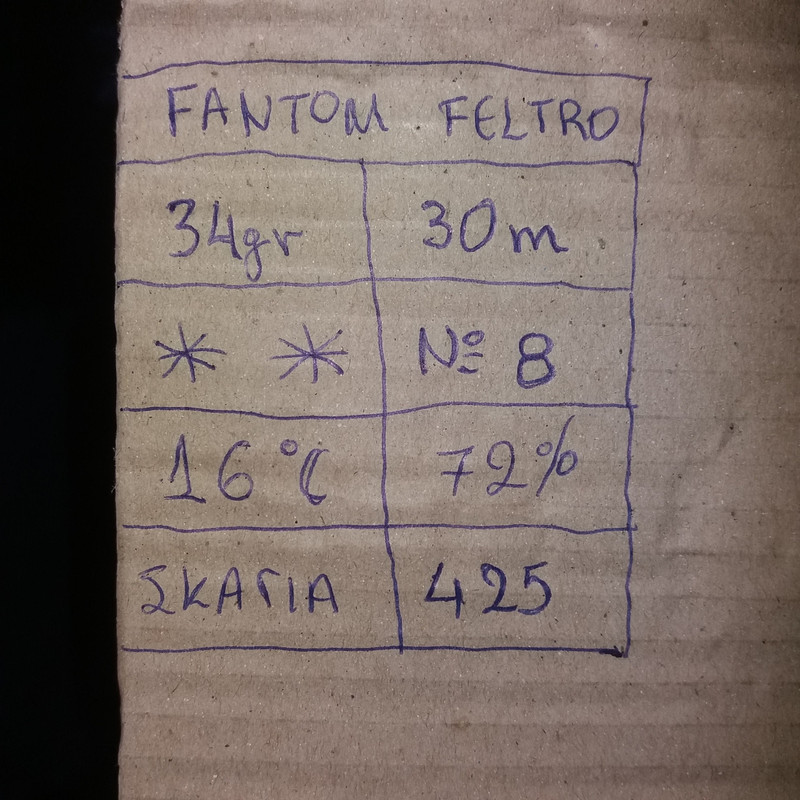 FANTOM FELTRO
34gr 30m
* * № 8
16°C 72%
ΣΚΑΓΙΑ 425